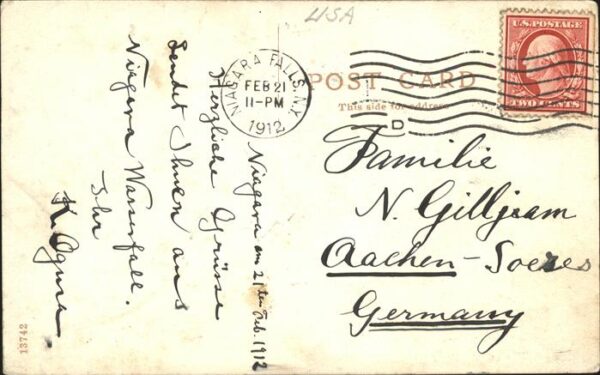 USA
U.S. POSTAGE
TWO CENTS
NIAGARA FALLS, N.Y.
FEB 21
11-PM
1912
D
POST CARD
This side for address
Familie
N. Gilljam
Aachen - Soers
Germany
Niagara am 21ten Feb. 1912
Herzliche Grüsse
sendet Ihnen aus
Niagara Wasserfall.
Ihr
K. Ogura
13742